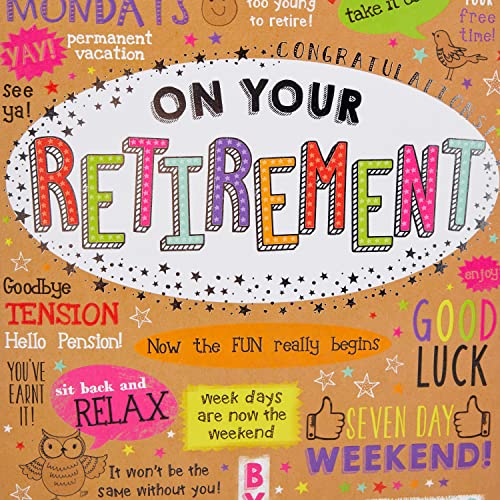 MONDAYS
too young
to retire!
take it
YOUR
free
time!
YAY!
permanent
vacation
see
ya!
CONGRATULATIONS
ON YOUR
RETIREMENT
enjoy
Goodbye
TENSION
Hello Pension!
Now the FUN really begins
GOOD
LUCK
YOU'VE
EARNT
IT!
sit back and
RELAX
week days
are now the
weekend
SEVEN DAY
WEEKEND!
It won't be the
same without you!
B